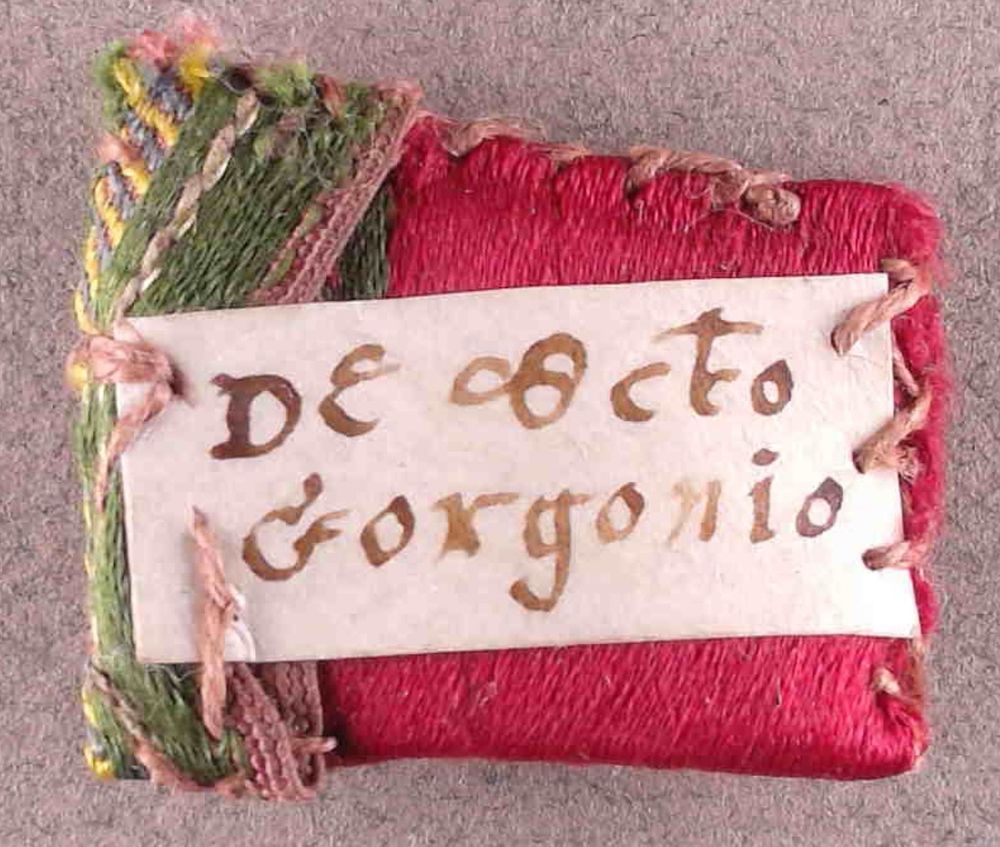 De Scto
Gorgonio